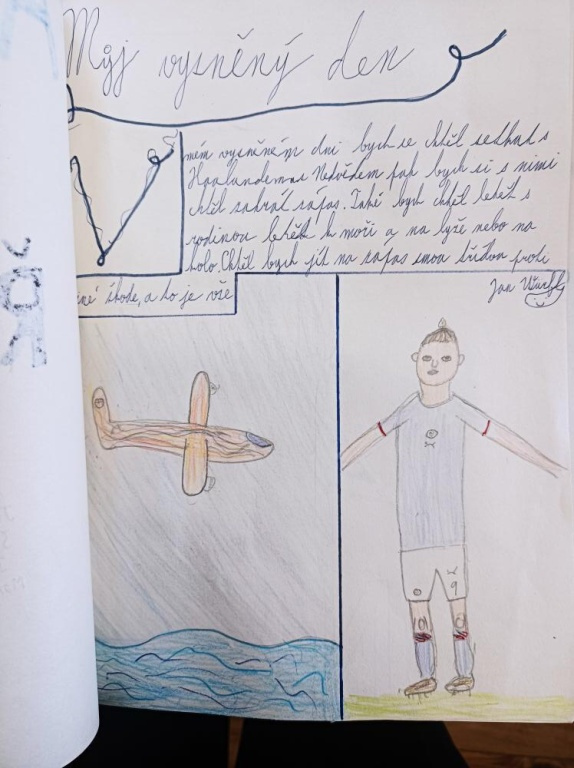 Můj vysněný den
V mém vysněném dni bych se chtěl setkat s
Haalandem a s Nedvědem pak bych si s nimi
chtěl zahrát zápas. Také bych chtěl letět s
rodinou letět k moři a na lyže nebo na
kolo. Chtěl bych jít na zápas s mou třídou proti
jiné škole, a to je vše
Jan
9